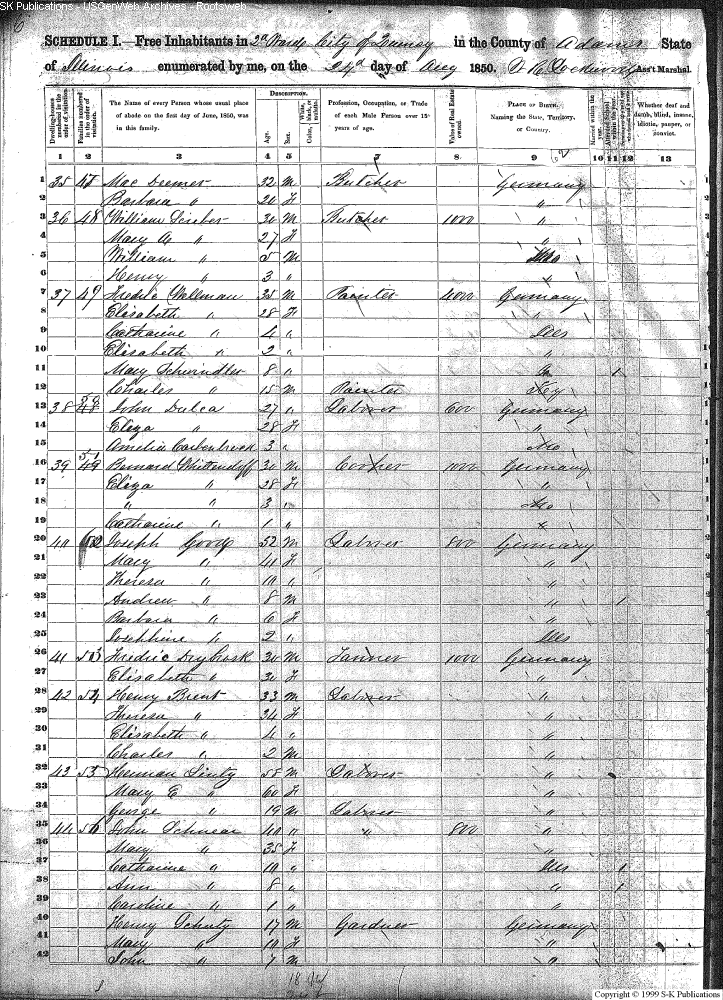 SK Publications - USGenWeb Archives - Rootsweb
SCHEDULE I. Free Inhabitants in 2d Ward City of Quincy in the County of Adams State
of Illinois enumerated by me, on the 24d day of Aug 1850. Ass't Marshal.
Dwelling-houses numbered in the order of visitation.
Families numbered in the order of visitation.
The Name of every Person whose usual place of abode on the first day of June, 1850, was in this family.
DESCRIPTION.
Age.
Sex.
White, black, or mulatto.
Color,
Profession, Occupation, or Trade of each Male Person over 15 years of age.
Value of Real Estate owned.
PLACE OF BIRTH. Naming the State, Territory, or Country.
Married within the year.
Attended School within the year.
Whether deaf and dumb, blind, insane, idiotic, pauper, or convict.
1 2 3 4 5 6 7 8 9 10 11 12 13
1 35 47 Mac Deemer 32 M Butcher Germany
2 Barbara " 20 F "
3 36 48 William 30 M Butcher 1000 "
4 Mary A " 27 F "
5 William " 5 M Mo
6 Henry " 3 " "
7 37 49 Fredric 35 M Painter 4000 Germany
8 Elisabeth " 28 F "
9 Catharine " 4 " Ills
10 Elisabeth " 2 " "
11 Mary Schwindler 8 " 1
12 Charles " 15 M Painter Ky
13 38 John Dulca 27 " Labover 600 Germany
14 Eliza " 28 F "
15 Amelia 3 " Mo
16 39 Bernard 30 M Cooper 1000 Germany
17 Eliza " 28 F "
18 " " 3 " Mo
19 Catharine " 1 " "
20 40 52 Joseph Goodg 52 M Labover 800 Germany
21 Mary " 41 F "
22 Theresa " 10 " "
23 Andrew " 8 M " 1
24 Barbara " 6 F "
25 Josephine " 2 " Ills
26 41 53 Fredric 30 M Tanner 1000 Germany
27 Elisabeth " 30 F "
28 42 54 Henry Brent 33 M Labover "
29 Theresa " 34 F "
30 Elisabeth " 4 " "
31 Charles " 2 M "
32 43 55 Herman 58 M Labover "
33 Mary E " 60 F "
34 George " 19 M Labover "
35 44 56 John Schnear 40 " " 800 "
36 Mary " 35 F "
37 Catharine " 10 " Ills 1
38 Ann " 8 " " 1
39 Caroline " 1 " "
40 Henry Schuty 17 M Gardner Germany
41 Mary " 10 F "
42 John " 7 M "
Copyright © 1999 S-K Publications